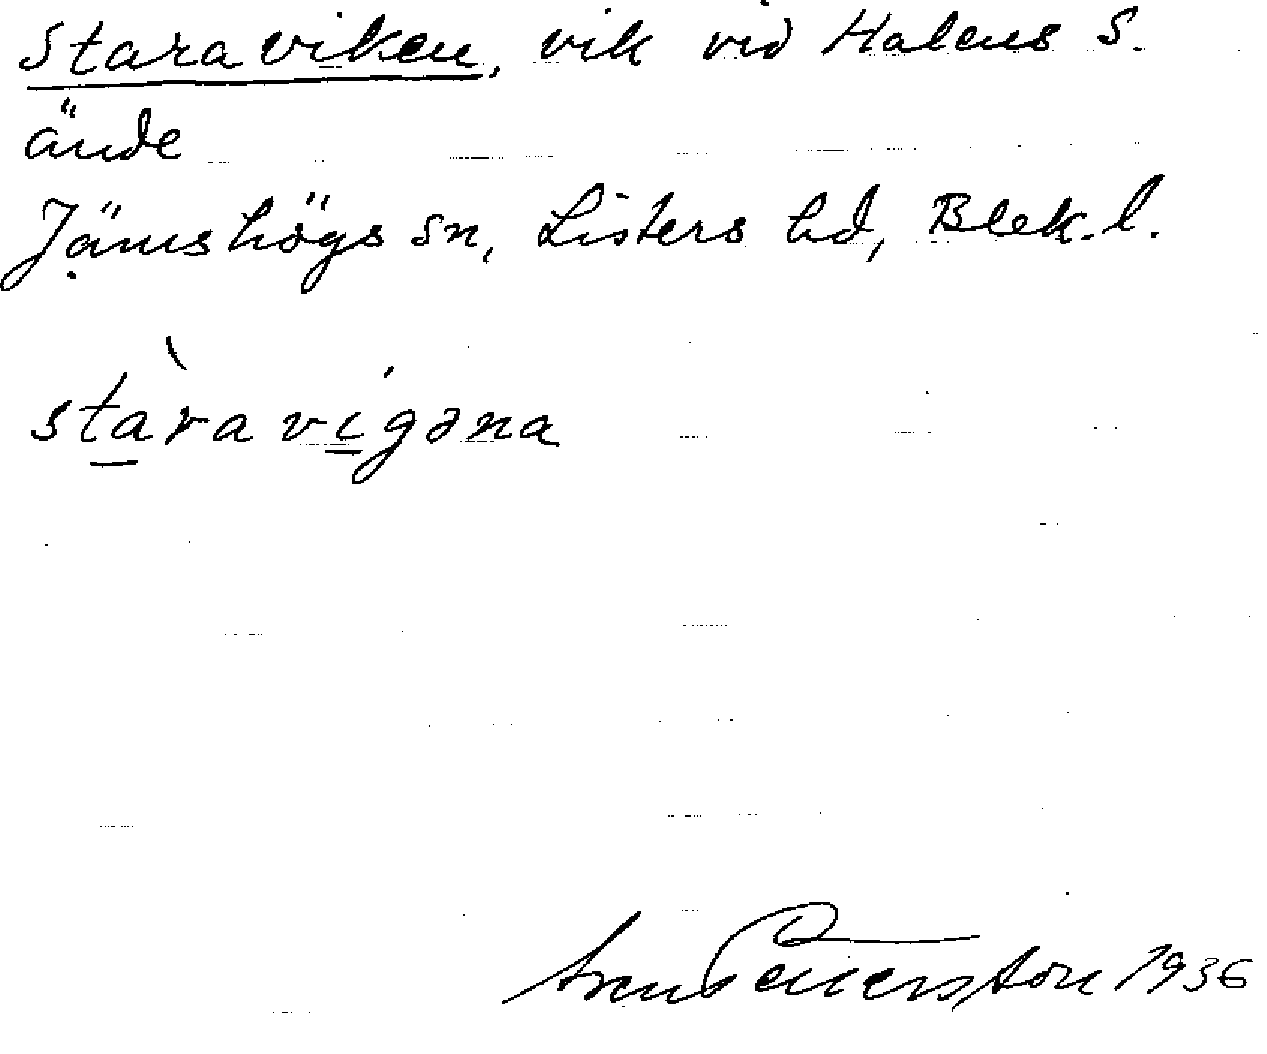 Staraviken, vik vid Halens S.
ände
Jämshögs sn, Listers hd, Blek. l.
stàravígəna
1936